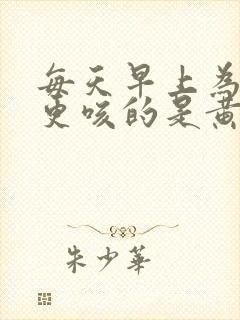 每天早上為
更咳的是黄
朱少華